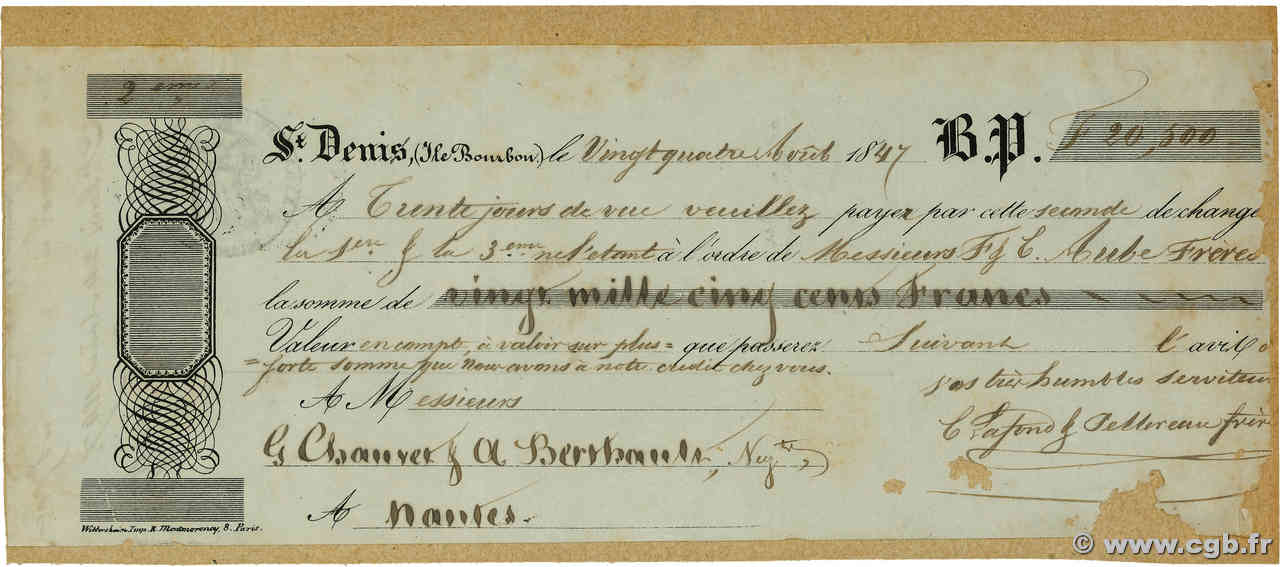 2eme
St. Denis, (Ile Bourbon) le Vingt quatre Août 1847 B.P. F 20,500
A Trente jours de vue veuillez payer par cette seconde de change
la 1ere & la 3eme ne l'etant à l'ordre de Messieurs F & C. Aube Frères
la somme de vingt mille cinq cents Francs
Valeur en compte, à valoir sur plus = que passerez Suivant l'avis
= forte somme que nous avons à notre credit chez vous.
vos très humbles serviteurs
A Messieurs
C Lafond & Pellereau frère
G Chauvet & A Berthault, Negts
A Nantes.
Wittersheim, Imp. R. Montmorency, 8. Paris.
© www.cgb.fr